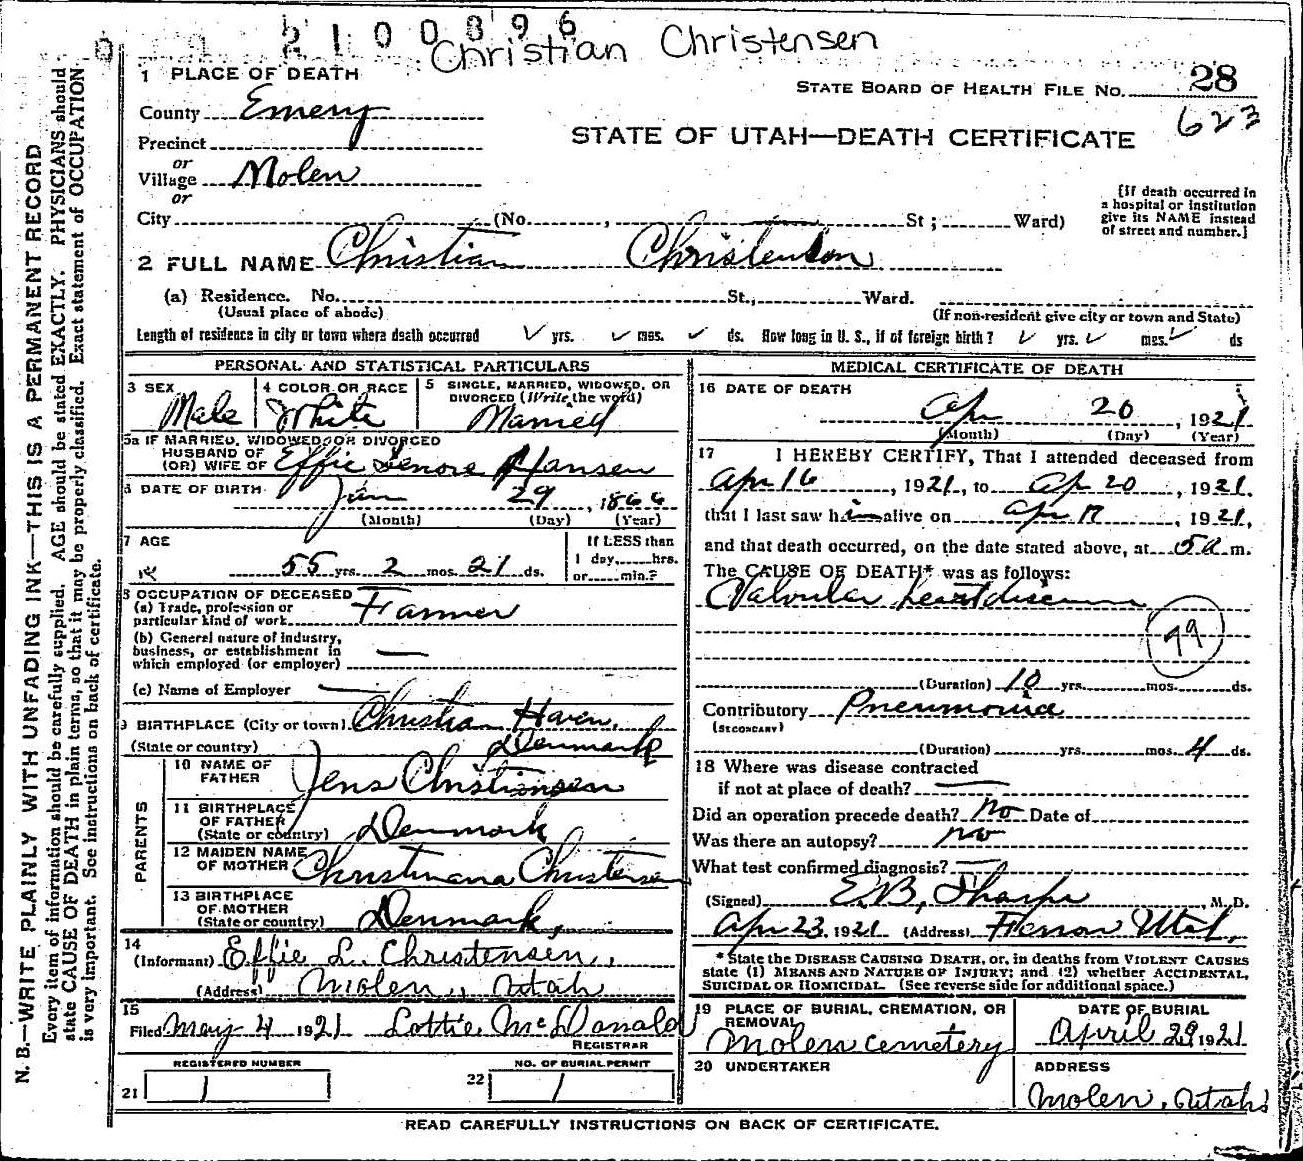 2100896
Christian Christensen
1 PLACE OF DEATH
STATE BOARD OF HEALTH FILE No. 28
County Emery
623
STATE OF UTAH—DEATH CERTIFICATE
Precinct
or
Village Molen
or
City (No. , St ; Ward)
[If death occurred in
a hospital or institution
give its NAME instead
of street and number.]
2 FULL NAME Christian Christenson
(a) Residence. No. St., Ward.
(Usual place of abode) (If non-resident give city or town and State)
Length of residence in city or town where death occurred ✓ yrs. ✓ mos. ✓ ds. How long in U. S., if of foreign birth? ✓ yrs. ✓ mos. ✓ ds
PERSONAL AND STATISTICAL PARTICULARS
3 SEX Male
4 COLOR OR RACE White
5 SINGLE, MARRIED, WIDOWED, OR
DIVORCED (Write the word)
Married
5a IF MARRIED, WIDOWED, OR DIVORCED
HUSBAND OF
(OR) WIFE OF Effie Lenore Hansen
6 DATE OF BIRTH Jan 29, 1866
(Month) (Day) (Year)
7 AGE 55 yrs. 2 mos. 21 ds.
If LESS than
1 day, hrs.
or min.?
8 OCCUPATION OF DECEASED
(a) Trade, profession or
particular kind of work Farmer
(b) General nature of industry,
business, or establishment in
which employed (or employer) —
(c) Name of Employer —
9 BIRTHPLACE (City or town) Christian Haven,
(State or country) Denmark
PARENTS
10 NAME OF
FATHER Jens Christiansen
11 BIRTHPLACE
OF FATHER
(State or country) Denmark
12 MAIDEN NAME
OF MOTHER Christinana Christensen
13 BIRTHPLACE
OF MOTHER
(State or country) Denmark,
14
(Informant) Effie L. Christensen,
(Address) Molen, Utah
15
Filed May 4 1921 Lottie McDonald
REGISTRAR
REGISTERED NUMBER
21 1
NO. OF BURIAL PERMIT
22 1
MEDICAL CERTIFICATE OF DEATH
16 DATE OF DEATH
Apr 20, 1921
(Month) (Day) (Year)
17 I HEREBY CERTIFY, That I attended deceased from
Apr 16, 1921, to Ap 20, 1921.
that I last saw him alive on Apr 17, 1921,
and that death occurred, on the date stated above, at 5 a m.
The CAUSE OF DEATH* was as follows:
Valvular heart disease
79
(Duration) 10 yrs. mos. ds.
Contributory Pneumonia
(SECONDARY)
(Duration) yrs. mos. 4 ds.
18 Where was disease contracted
if not at place of death? —
Did an operation precede death? No Date of
Was there an autopsy? no
What test confirmed diagnosis? —
(Signed) E.B. Tharpe, M. D.
Apr 23, 1921 (Address) Ferron Utah.
* State the DISEASE CAUSING DEATH, or, in deaths from VIOLENT CAUSES
state (1) MEANS AND NATURE OF INJURY; and (2) whether ACCIDENTAL,
SUICIDAL OR HOMICIDAL. (See reverse side for additional space.)
19 PLACE OF BURIAL, CREMATION, OR
REMOVAL
Molen cemetery
DATE OF BURIAL
April 29 1921
20 UNDERTAKER
ADDRESS
Molen, Utah
READ CAREFULLY INSTRUCTIONS ON BACK OF CERTIFICATE.
N. B.—WRITE PLAINLY WITH UNFADING INK—THIS IS A PERMANENT RECORD
Every item of information should be carefully supplied. AGE should be stated EXACTLY. PHYSICIANS should
state CAUSE OF DEATH in plain terms, so that it may be properly classified. Exact statement of OCCUPATION
is very important. See instructions on back of certificate.